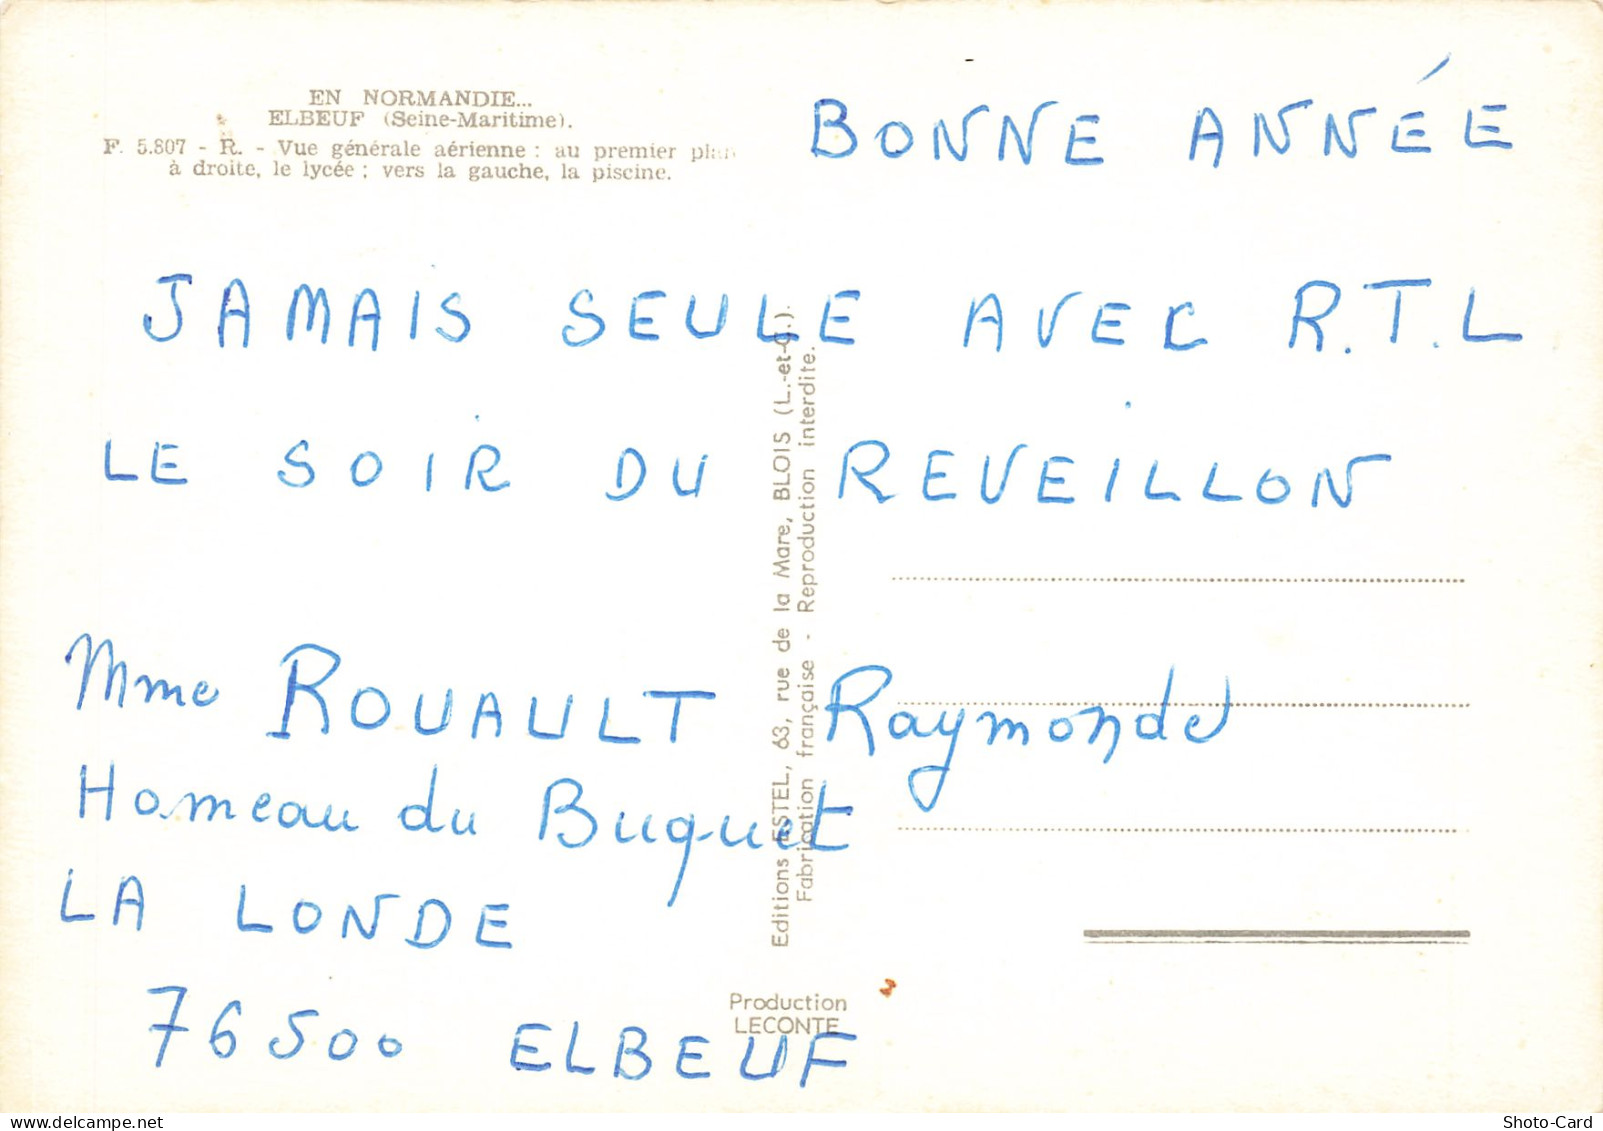 EN NORMANDIE...
ELBEUF (Seine-Maritime).
F. 5.807 - R. - Vue générale aérienne : au premier plan
à droite, le lycée ; vers la gauche, la piscine.
BONNE ANNÉE
JAMAIS SEULE AVEC R.T.L
LE SOIR DU REVEILLON
Mme ROUAULT Raymonde
Hameau du Buquet
LA LONDE
76500 ELBEUF
Editions ESTEL, 63, rue de la Mare, BLOIS (L.-et-C.).
Fabrication française - Reproduction interdite.
Production
LECONTE
Shoto-Card